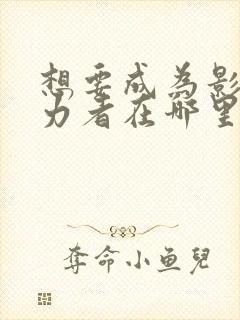 想要成为影
力者在哪里
夺命小鱼兒